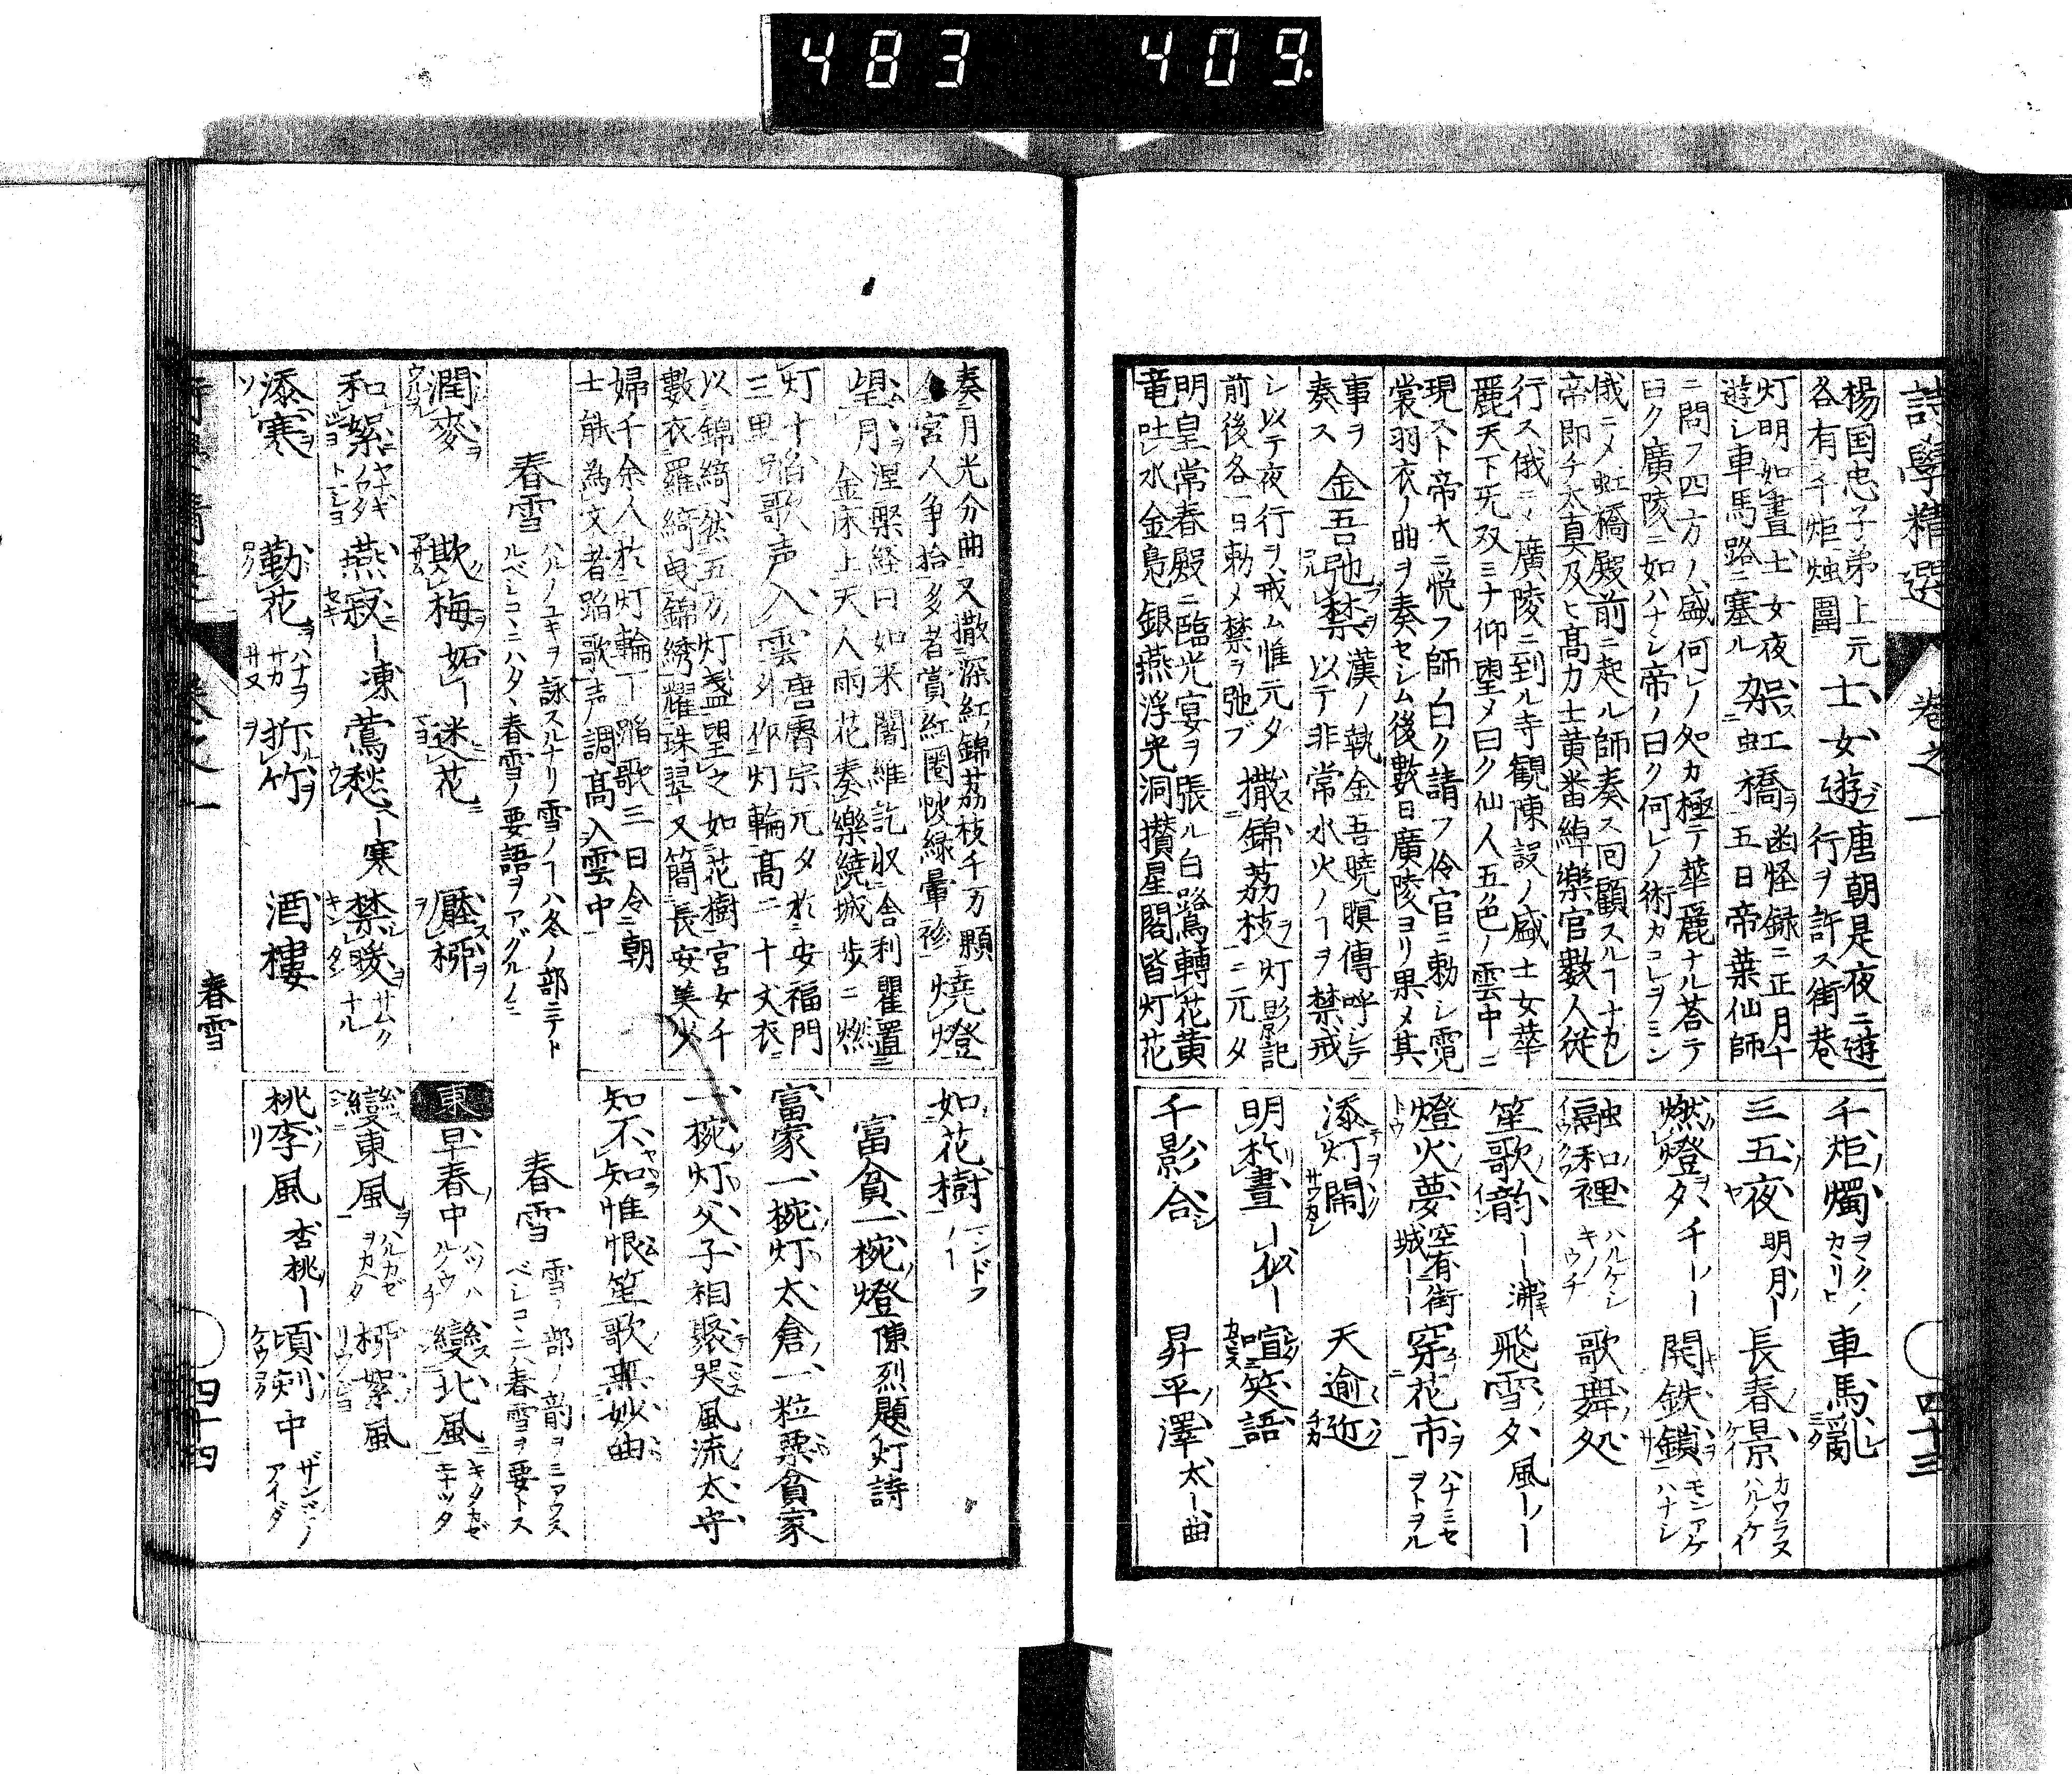 483 409.
詩學精選 巻之一 四十三
楊国忠子弟上元
各有千炬燭圍
士女遊
唐朝是夜ニ遊
行ヲ許ス街巷
灯明如晝士女夜
遊シ車馬路ニ塞ル
架虹橋
幽怪録ニ正月十
五日帝葉仙師
ニ問フ四方ノ盛何レノ処カ極テ華麗ナル荅テ
曰ク廣陵ニ如ハナシ帝ノ曰ク何レノ術カコレヲミン
俄ニメ虹橋殿前ニ起ル師奏ス回顧スルヿナカレ
帝即チ太真及ヒ髙力士黄番綽樂官數人従
行ス俄ニメ廣陵ニ到ル寺観陳設ノ盛士女華
麗天下旡双ミナ仰望メ曰ク仙人五色ノ雲中ニ
現スト帝大ニ悦フ師ノ白ク請フ伶官ニ勅シ霓
裳羽衣ノ曲ヲ奏セシム後數日廣陵ヨリ果メ其
事ヲ
奏ス
金吾弛禁
漢ノ執金吾曉暝傳呼シテ
以テ非常水火ノヿヲ禁戒
シ以テ夜行ヲ戒ム惟元夕
前後各一日勅メ禁ヲ弛ブ
撒錦荔枝
灯影記
ニ元夕
明皇常春殿ニ臨光宴ヲ張ル白鷺轉花黄
竜吐水金鳬銀燕浮光洞攅星閣皆灯花
千炬燭 車馬亂
三五夜 明月ー 長春景 カワラヌ ハルノケイ
燃燈夕 千ーー 開鉄鎖 モンアケ ハナシ
融和裡 ハルケシキノウチ 歌舞処
笙歌韵 ーー沸 飛雪夕 風ーー
燈火夢 空有街 城ーー 穿花市 ハナミセ ヲトヲル
添灯鬧 天逾近
明於晝 ー似ー 喧笑語
千影合 昇平澤 太ー曲
奏月光分曲又撒深紅錦荔枝千万顆
宮人争拾多者賞紅圏帔緑暈衫
燒燈
望月
涅槃経曰如来闍維訖収舎利瞿置
金床上天人雨花奏樂繞城歩ニ燃
灯十
三里
蹈歌声入雲
唐睿宗元夕於安福門
外作灯輪髙二十丈衣
以錦綺然五万灯盞望之如花樹宮女千
數衣羅綺曳錦繡耀珠翠又簡長安美少
婦千余人於灯輪下蹈歌三日令朝
士能為文者蹈歌声調髙入雲中
春雪
ハルノユキヲ詠スルナリ雪ノヿハ冬ノ部ニテト
ルベシコヽニハタヾ春雪ノ要語ヲアグルノミ
潤麥 欺梅 妬ー 迷花 壓柳
和絮 燕寂 ー凍 鶯愁 ー寒 禁暖 サムク ナル
添寒 勒花 折竹 酒樓
如花樹
富貧一椀燈 陳烈題灯詩
富家一椀灯太倉一粒粟貧家
一椀灯父子相聚哭風流太守
知不知惟恨笙歌無妙曲
春雪
雪ノ部ノ韵ヲミアワス
ベシコヽニハ春雪ヲ要トス
東 早春中 ハツハルノウチ 變北風 キタカゼ
變東風 ハルカゼ 柳絮風
桃李風 杏桃ー 頃刻中 ザンジノ アイダ
春雪
四十四